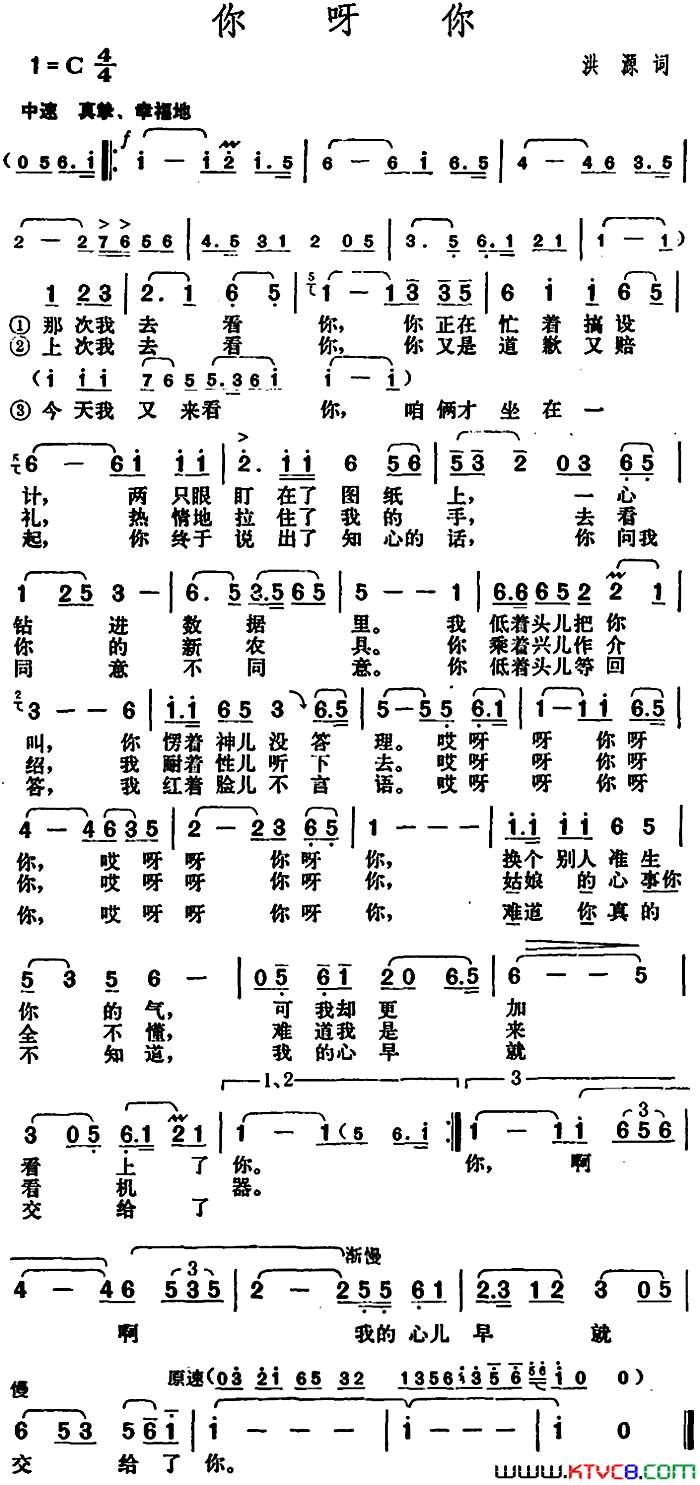 你 呀 你
1=C 4/4
洪 源 词
中速 真挚、幸福地
f
(0 5 6. i ‖: i — i 2 i. 5 | 6 — 6 i 6. 5 | 4 — 4 6 3. 5 |
2 — 2 7 6 5 6 | 4. 5 3 1 2 0 5 | 3. 5 6. 1 2 1 | 1 — 1 )
1 2 3 | 2. 1 6 5 | 1 — 1 3 3 5 | 6 i i 6 5 |
① 那 次我 去 看 你, 你 正在 忙 着 搞 设
② 上 次我 去 看 你, 你 又是 道 歉 又 赔
( i i i 7 6 5 5. 3 6 i i — i )
③ 今 天我 又 来看 你, 咱 俩才 坐 在 一
6 — 6 i i i | 2. i i 6 5 6 | 5 3 2 0 3 6 5 |
计, 两 只眼 盯 在了 图 纸 上, 一 心
礼, 热 情地 拉 住了 我 的 手, 去 看
起, 你 终于 说 出了 知 心的 话, 你 问我
1 2 5 3 — | 6. 5 3. 5 6 5 | 5 — — 1 | 6. 6 6 5 2 2 1 |
钻 进 数 据 里。 我 低着头儿把 你
你 的 新 农 具。 你 乘着兴儿作 介
同 意 不 同 意。 你 低着头儿等 回
3 — — 6 | i. i 6 5 3 6. 5 | 5 — 5 5 6. 1 | 1 — 1 i 6. 5 |
叫, 你 愣着 神儿 没 答 理。 哎呀 呀 你呀
绍, 我 耐着 性儿 听 下 去。 哎呀 呀 你呀
答, 我 红着 脸儿 不 言 语。 哎呀 呀 你呀
4 — 4 6 3 5 | 2 — 2 3 6 5 | 1 — — — | i. i i i 6 5 |
你, 哎呀 呀 你呀 你, 换个 别人 准生
你, 哎呀 呀 你呀 你, 姑娘 的 心 事你
你, 哎呀 呀 你呀 你, 难道 你 真 的
5 3 5 6 — | 0 5 6 1 2 0 6. 5 | 6 — — 5 |
你 的 气, 可 我却 更 加
全 不 懂, 难 道我 是 来
不 知 道, 我 的心 早 就
1、2 3
3 0 5 6. 1 2 1 | 1 — 1 ( 5 6. i :‖ 1 — 1 i 6 5 6 |
看 上 了 你。 你, 啊
看 机 器。
交 给 了
渐慢
4 — 4 6 5 3 5 | 2 — 2 5 5 6 1 | 2. 3 1 2 3 0 5 |
啊 我的 心儿 早 就
慢 原速 ( 0 3 2 1 6 5 3 2 1 3 5 6 i 3 5 6 i 0 0 )
6 5 3 5 6 1 | i — — — | i — — — | i 0 ‖
交 给 了 你。
www.KTVC8.com